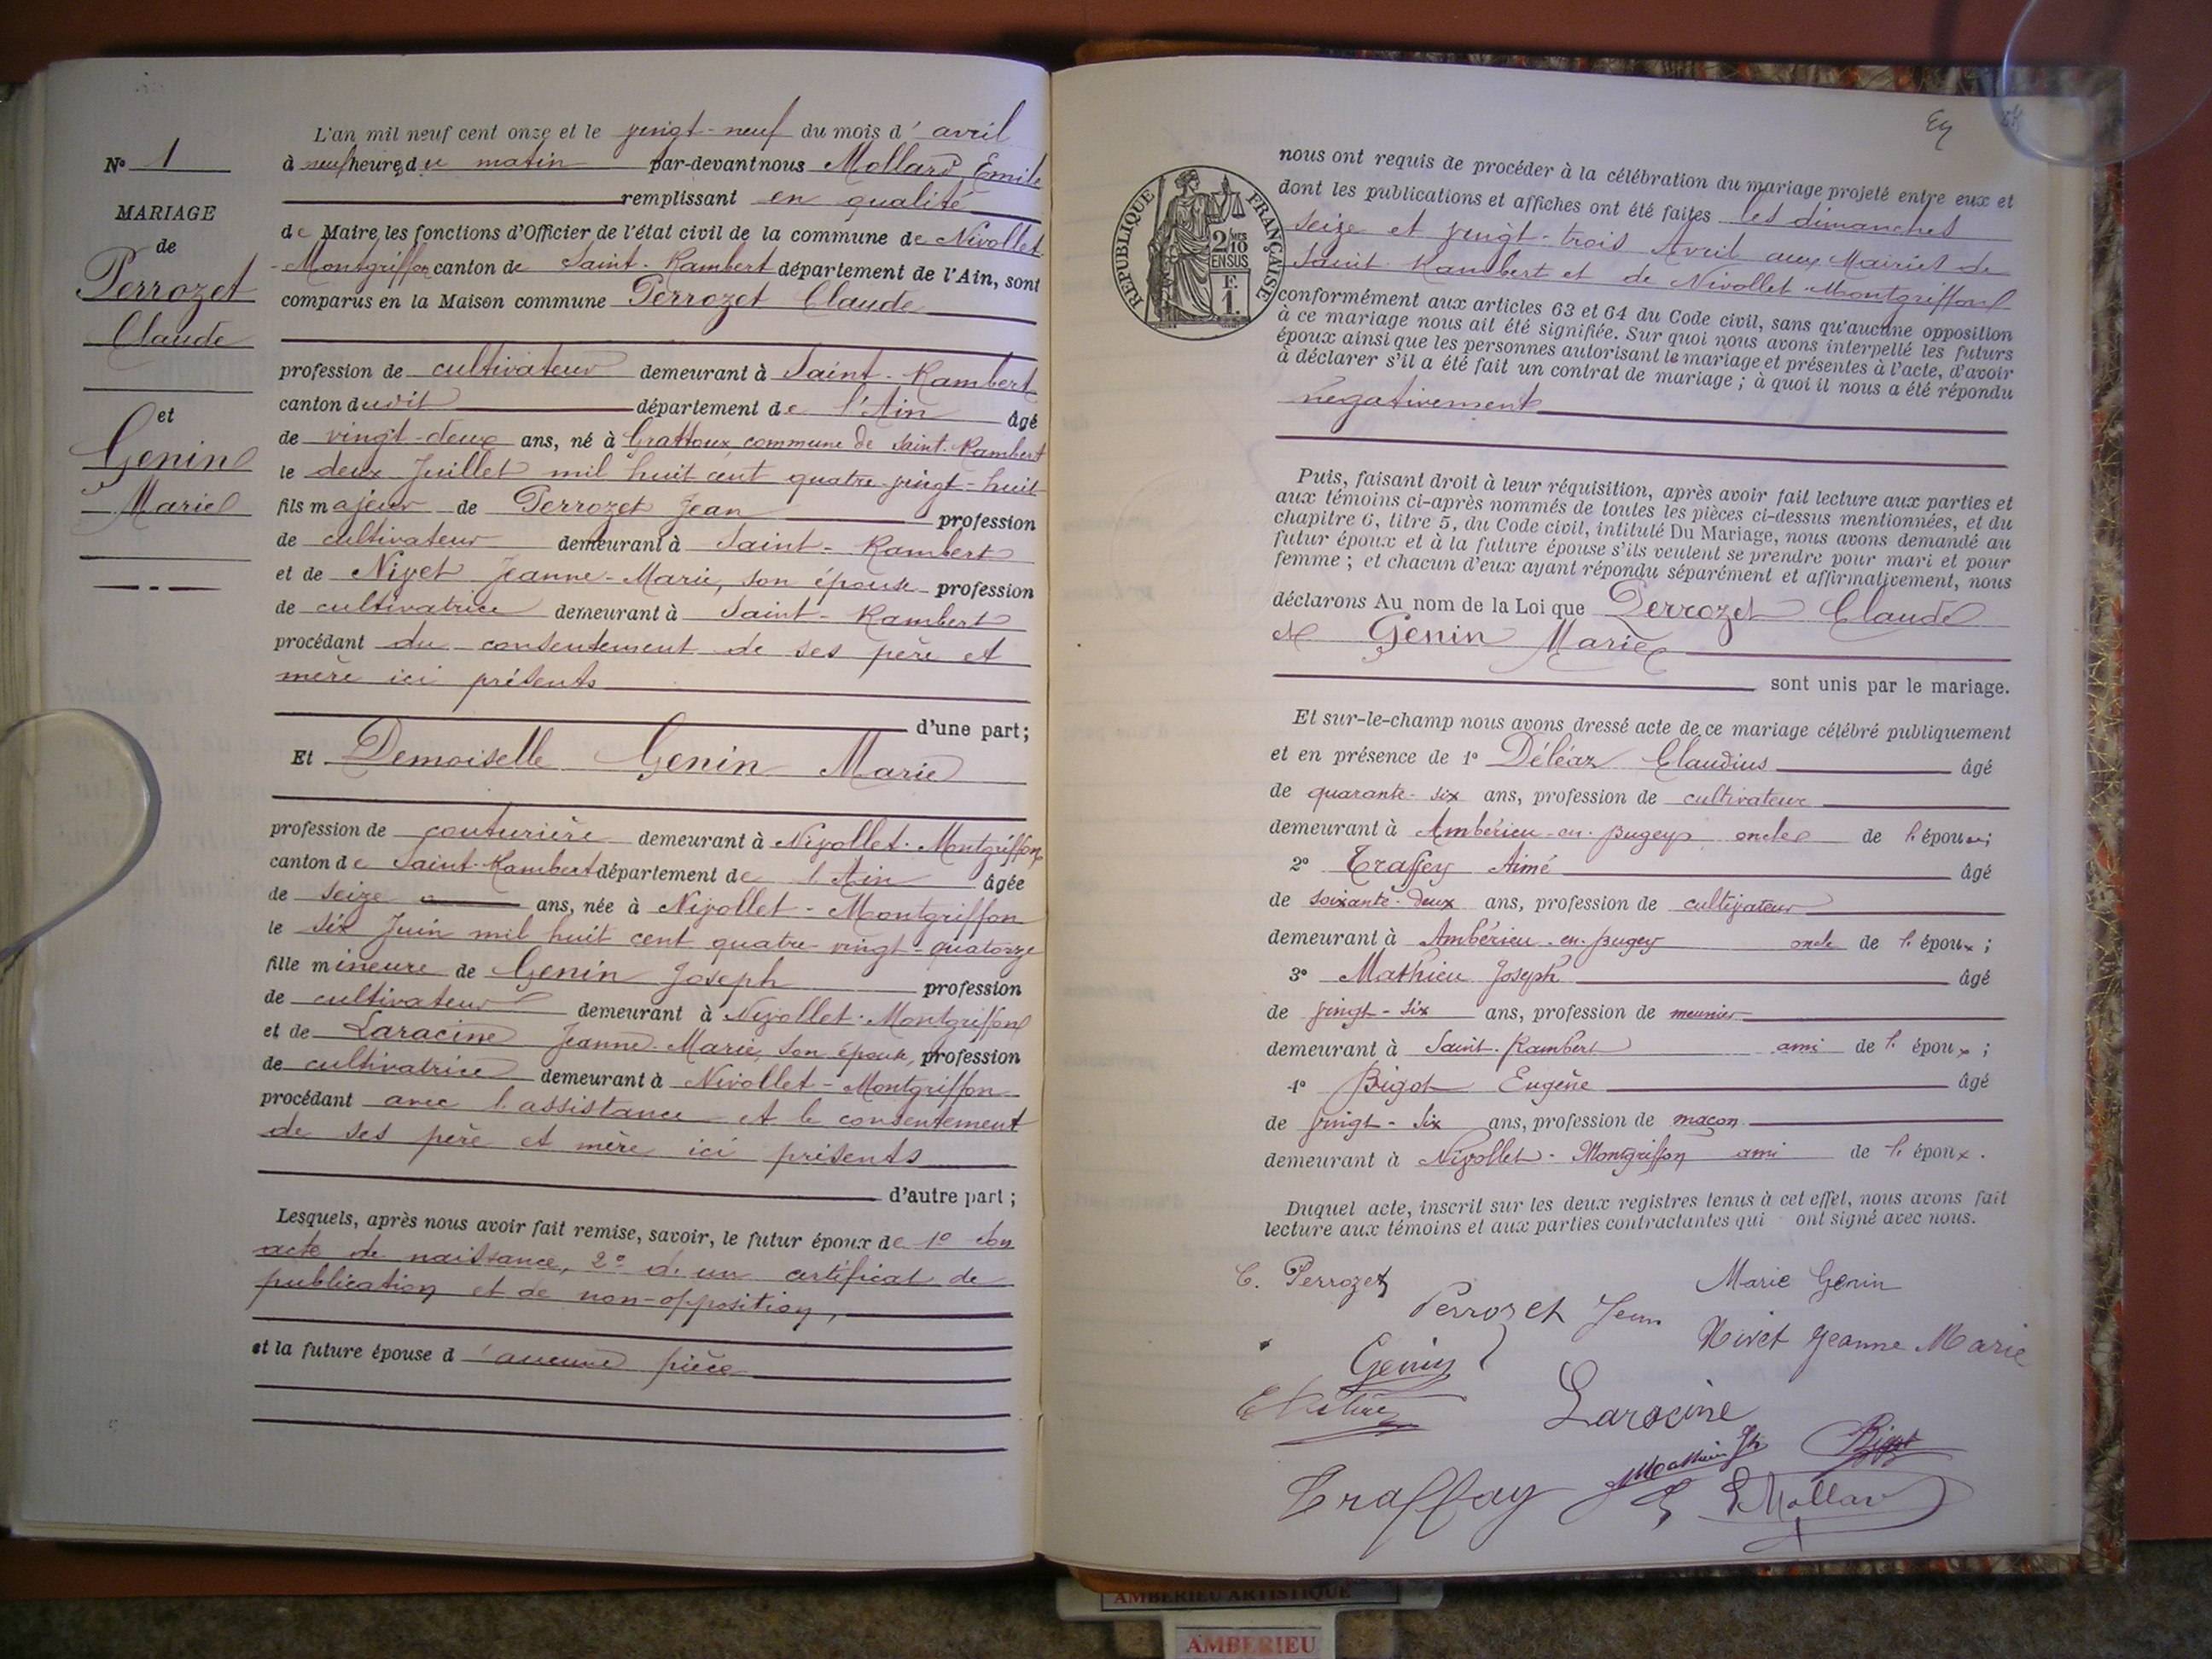 N° 1
MARIAGE
de
Perrozet
Claude
et
Genin
Marie
L'an mil neuf cent onze et le vingt-neuf du mois d'avril
à neuf heures du matin par-devant nous Mollard Emile
remplissant en qualité
de Maire les fonctions d'Officier de l'état civil de la commune de Nivollet-
Montgriffon canton de Saint-Rambert département de l'Ain, sont
comparus en la Maison commune Perrozet Claude
profession de cultivateur demeurant à Saint-Rambert
canton dudit département de l'Ain âgé
de vingt-deux ans, né à Grattoux commune de Saint-Rambert
le deux Juillet mil huit cent quatre-vingt-huit
fils majeur de Perrozet Jean profession
de cultivateur demeurant à Saint-Rambert
et de Nivet Jeanne-Marie, son épouse profession
de cultivatrice demeurant à Saint-Rambert
procédant du consentement de ses père et
mère ici présents
d'une part;
Et Demoiselle Genin Marie
profession de couturière demeurant à Nivollet-Montgriffon
canton de Saint-Rambert département de l'Ain âgée
de seize ans, née à Nivollet-Montgriffon
le six Juin mil huit cent quatre-vingt-quatorze
fille mineure de Genin Joseph profession
de cultivateur demeurant à Nivollet-Montgriffon
et de Laracine Jeanne-Marie, son épouse, profession
de cultivatrice demeurant à Nivollet-Montgriffon
procédant avec l'assistance et le consentement
de ses père et mère ici présents
d'autre part;
Lesquels, après nous avoir fait remise, savoir, le futur époux de 1° son
acte de naissance, 2° d'un certificat de
publication et de non-opposition,
et la future épouse d'aucune pièce
RÉPUBLIQUE FRANÇAISE
2 MES
10
EN SUS
F.
1.
nous ont requis de procéder à la célébration du mariage projeté entre eux et
dont les publications et affiches ont été faites les dimanches
seize et vingt-trois Avril aux Mairies de
Saint-Rambert et de Nivollet-Montgriffon
conformément aux articles 63 et 64 du Code civil, sans qu'aucune opposition
à ce mariage nous ait été signifiée. Sur quoi nous avons interpellé les futurs
époux ainsi que les personnes autorisant le mariage et présentes à l'acte, d'avoir
à déclarer s'il a été fait un contrat de mariage; à quoi il nous a été répondu
négativement
Puis, faisant droit à leur réquisition, après avoir fait lecture aux parties et
aux témoins ci-après nommés de toutes les pièces ci-dessus mentionnées, et du
chapitre 6, titre 5, du Code civil, intitulé Du Mariage, nous avons demandé au
futur époux et à la future épouse s'ils veulent se prendre pour mari et pour
femme; et chacun d'eux ayant répondu séparément et affirmativement, nous
déclarons Au nom de la Loi que Perrozet Claude
et Genin Marie
sont unis par le mariage.
Et sur-le-champ nous avons dressé acte de ce mariage célébré publiquement
et en présence de 1° Déléaz Claudius âgé
de quarante-six ans, profession de cultivateur
demeurant à Ambérieu-en-Bugey oncle de l'époux;
2° Traffey Aimé âgé
de soixante-deux ans, profession de cultivateur
demeurant à Ambérieu-en-Bugey oncle de l'époux;
3° Mathieu Joseph âgé
de vingt-six ans, profession de meunier
demeurant à Saint-Rambert ami de l'époux;
4° Bigot Eugène âgé
de vingt-six ans, profession de maçon
demeurant à Nivollet-Montgriffon ami de l'époux.
Duquel acte, inscrit sur les deux registres tenus à cet effet, nous avons fait
lecture aux témoins et aux parties contractantes qui ont signé avec nous.
C. Perrozet
Marie Genin
Perrozet Jean
Nivet Jeanne Marie
Genin
Laracine
Mathieu Jh
Bigot
Traffay
E Mollard
AMBERIEU ARTISTIQUE
AMBERIEU